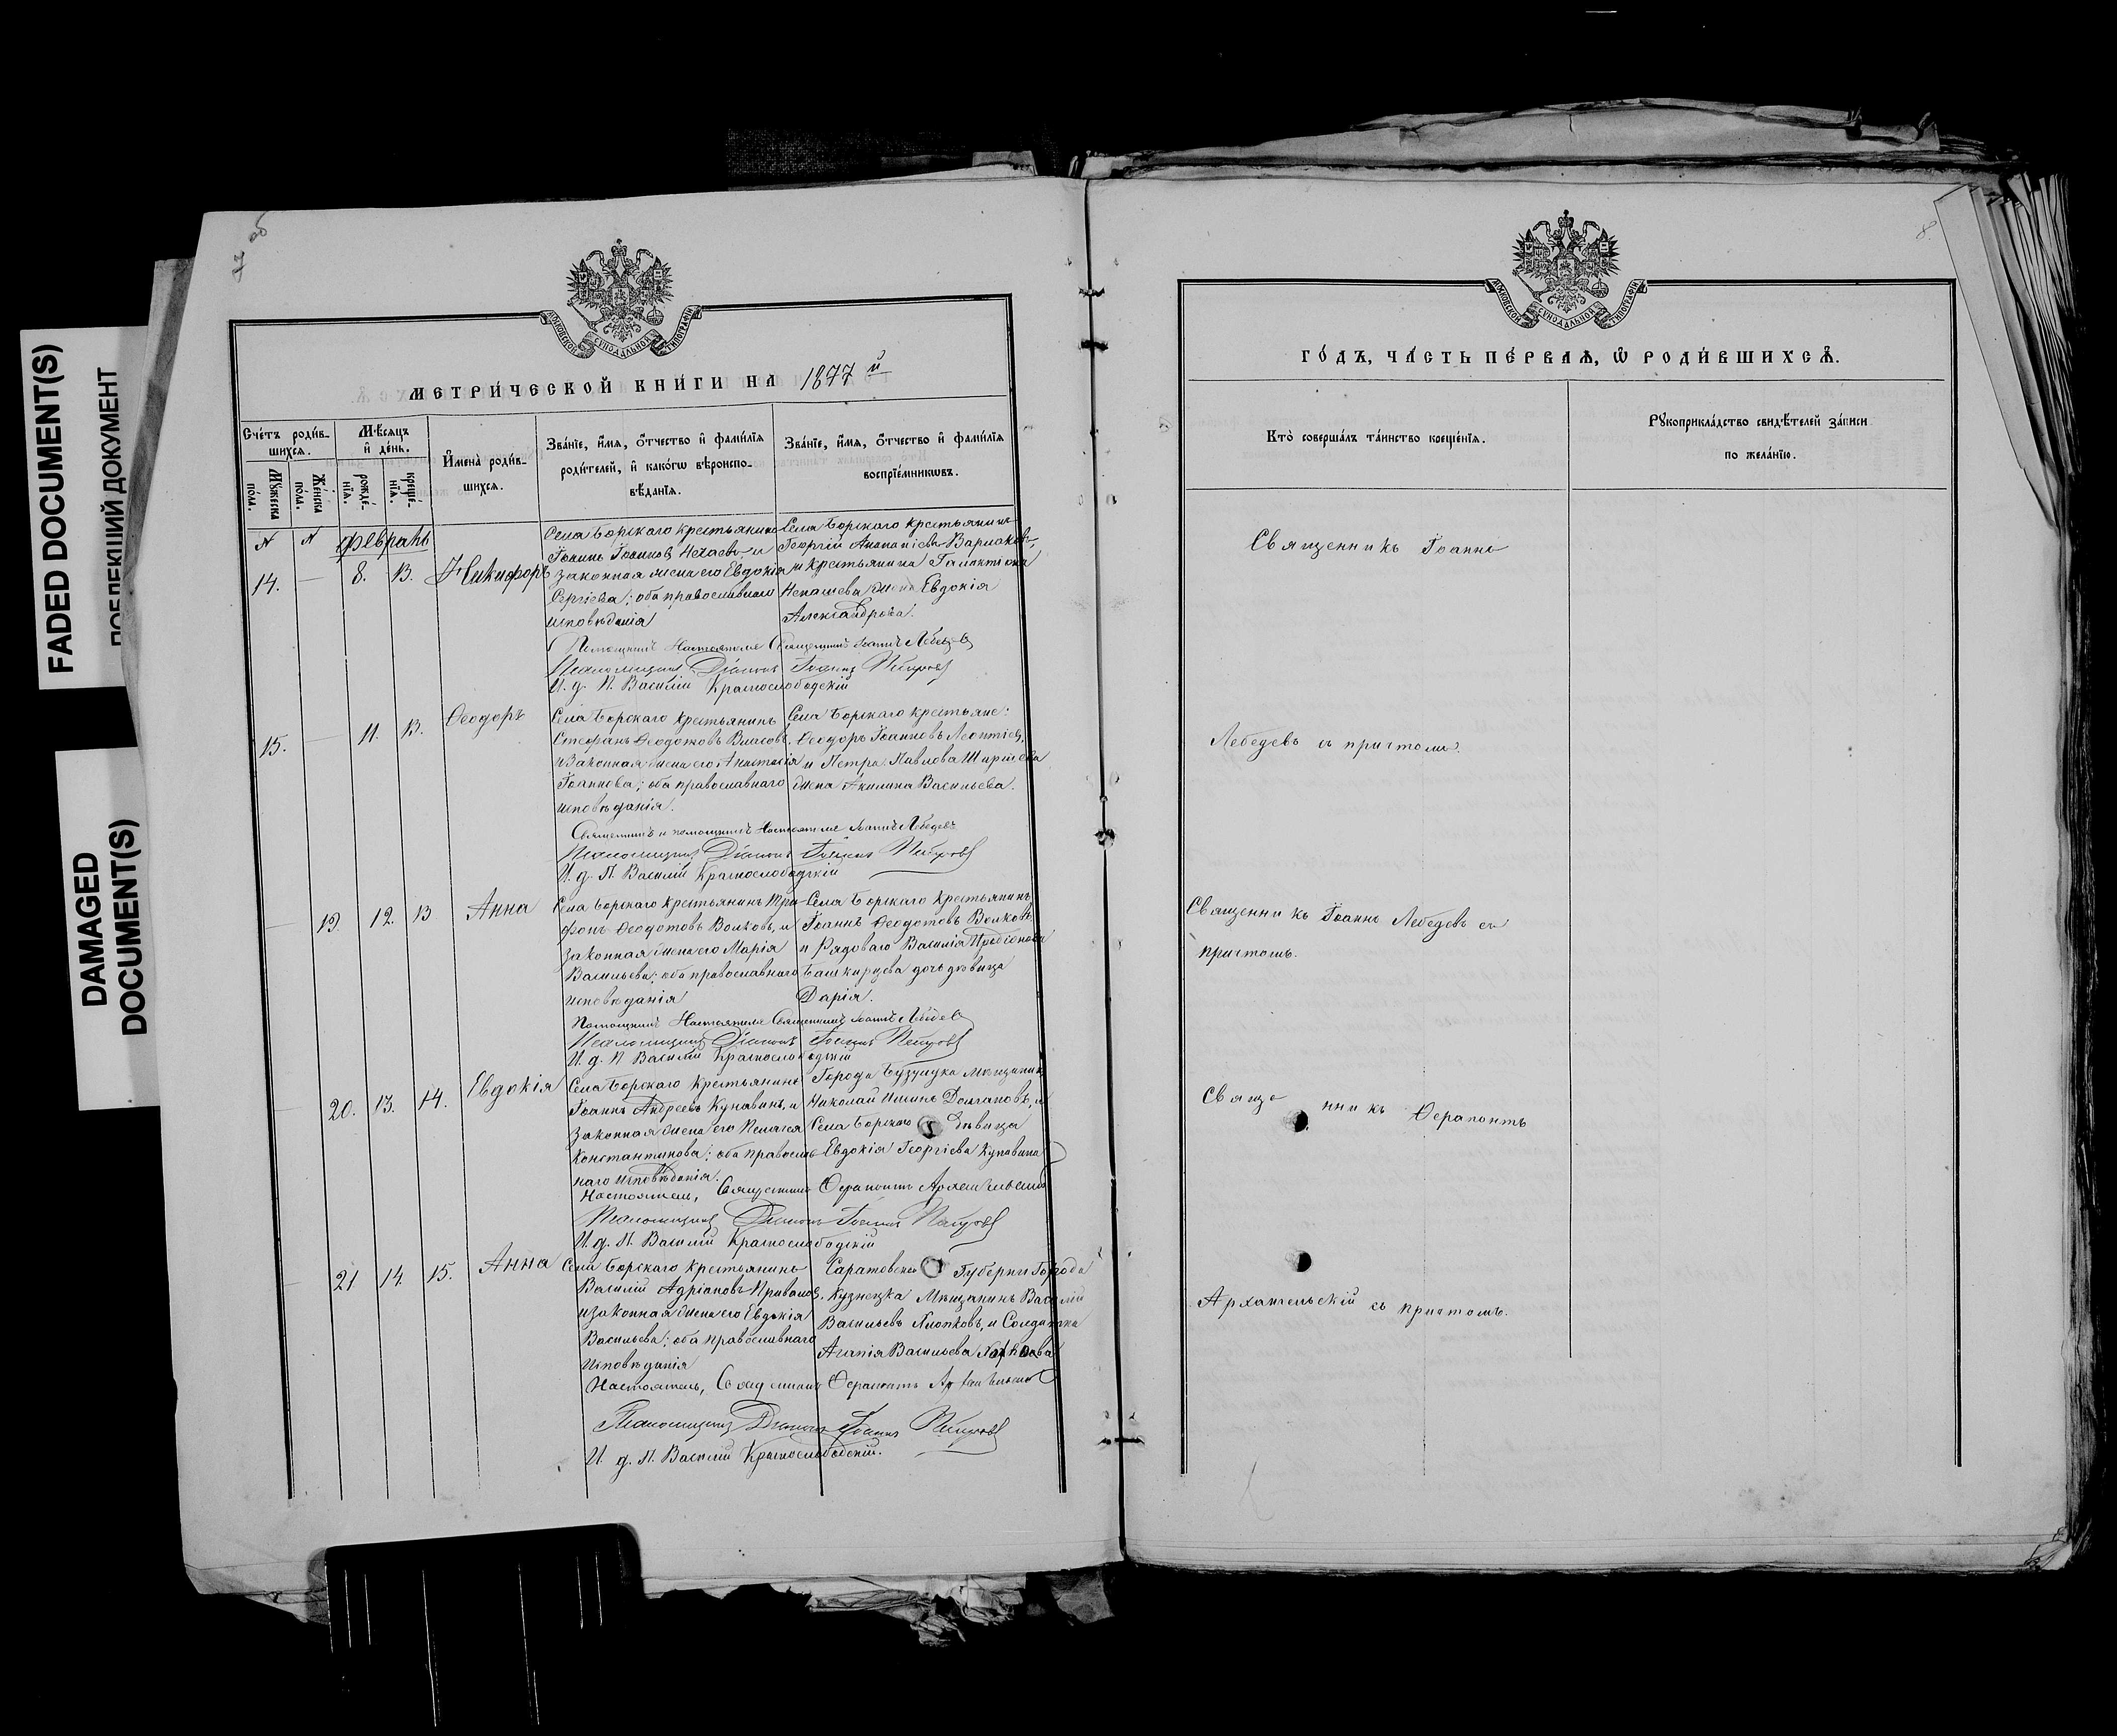 FADED DOCUMENT(S)
DAMAGED
DOCUMENT(S)
МОСКОВСКОЙ СѴНОДАЛЬНОЙ ТИПОГРАФІИ
МЕТРИ́ЧЕСКОЙ КНИ́ГИ НА 1877 й
Сче́тъ роди́в-
шихсѧ.
Мꙋ́жеска
по́ла.
Же́нска
по́ла.
Мѣ́сѧцъ
и҆ де́нь.
рожде́-
нїѧ.
креще́-
нїѧ.
И҆мена̀ роди́в-
шихсѧ.
Зва́нїе, и҆́мѧ, о҆́тчество и҆ фами́лїѧ
роди́телей, и҆ како́гѡ вѣроиспо-
вѣ́данїѧ.
Зва́нїе, и҆́мѧ, о҆́тчество и҆ фами́лїѧ
воспрїе́мникѡвъ.
февраль
14. — 8. 13. Никифоръ
Села Борскаго крестьянинъ
Іоаннъ Іоанновъ Нехаевъ и
законная жена его Евдокія
Сергіева; оба православнаго
исповѣданія
Села Борскаго крестьянинъ
Георгій
и крестьянина Галактіона
жена Евдокія
Александрова.
Помощникъ Настоятеля Священникъ Іоаннъ Лебедев
Псаломщикъ Діаконъ Іоаннъ Петровъ
И. д. П. Василій Краснослободскій
15. — 11. 13. Ѳеодоръ
Села Борскаго крестьянинъ
Стефанъ Ѳедотовъ Власовъ,
и законная жена его Анастасія
Іоаннова; оба православнаго
исповѣданія.
Села Борскаго крестьяне:
Ѳеодоръ Іоанновъ Леонтіев,
и Петра Павлова
жена Акилина Васильева.
Священникъ и помощникъ Настоятеля Іоаннъ Лебедевъ
Псаломщикъ Діаконъ Іоаннъ Петровъ
И. д. П. Василій Краснослободскій
— 19. 12. 13 Анна
Села Борскаго крестьянинъ Три-
фонъ Ѳеодотовъ Волковъ, и
законная жена его Марія
Васильева; оба православнаго
исповѣданія
Села Борскаго крестьянинъ
Іоаннъ Ѳеодотовъ Волковъ
и Рядоваго Василія Иродіонова
Башкирцева дочь дѣвица
Дарія.
Помощникъ Настоятеля Священникъ Іоаннъ Лебедев
Псаломщикъ Діаконъ Іоаннъ Петровъ
И. д. П Василій Краснослободскій
— 20. 13. 14. Евдокія
Села Борскаго крестьянинъ
Іоаннъ Андреевъ Кунавинъ, и
законная жена его Пелагея
Константинова; оба православ-
наго исповѣданія.
Города Бузулука Мѣщанинъ
Николай Долгановъ, и
Села Борскаго дѣвица
Евдокія Георгіева Кунавина
Настоятель, Священникъ Ѳерапонтъ Архангельскій
Псаломщикъ Діаконъ Іоаннъ Петровъ
И. д. П. Василій Краснослободскій
— 21 14. 15. Анна
Села Борскаго крестьянинъ
Василій Адріановъ Приваловъ,
и законная жена его Евдокія
Васильева; оба православнаго
исповѣданія
Саратовской Губерніи Города
Кузнецка Мѣщанинъ Василій
Васильевъ Хлопковъ, и Солдатка
Агапія Васильева
Настоятель, Священникъ Ѳерапонтъ Архангельскій
Псаломщикъ Діаконъ Іоаннъ Петровъ
И. д. П. Василій Краснослободскій.
8.
МОСКОВСКОЙ СѴНОДАЛЬНОЙ ТИПОГРАФІИ
ГО́ДЪ, ЧА́СТЬ ПЕ́РВАѦ, Ѡ҆ РОДИ́ВШИХСѦ.
Кто̀ соверша́лъ та́инство креще́нїѧ.
Рꙋкоприкла́дство свидѣ́телей за́писи
по жела́нїю.
Священникъ Іоаннъ
Лебедевъ съ причтомъ.
Священникъ Іоаннъ Лебедевъ съ
причтомъ.
Священникъ Ѳерапонтъ
Архангельскій съ причтомъ.